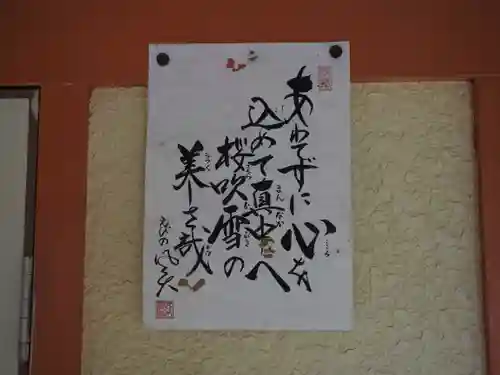 あわてずに心を
込めて真中へ
桜吹雪の
美しさ哉